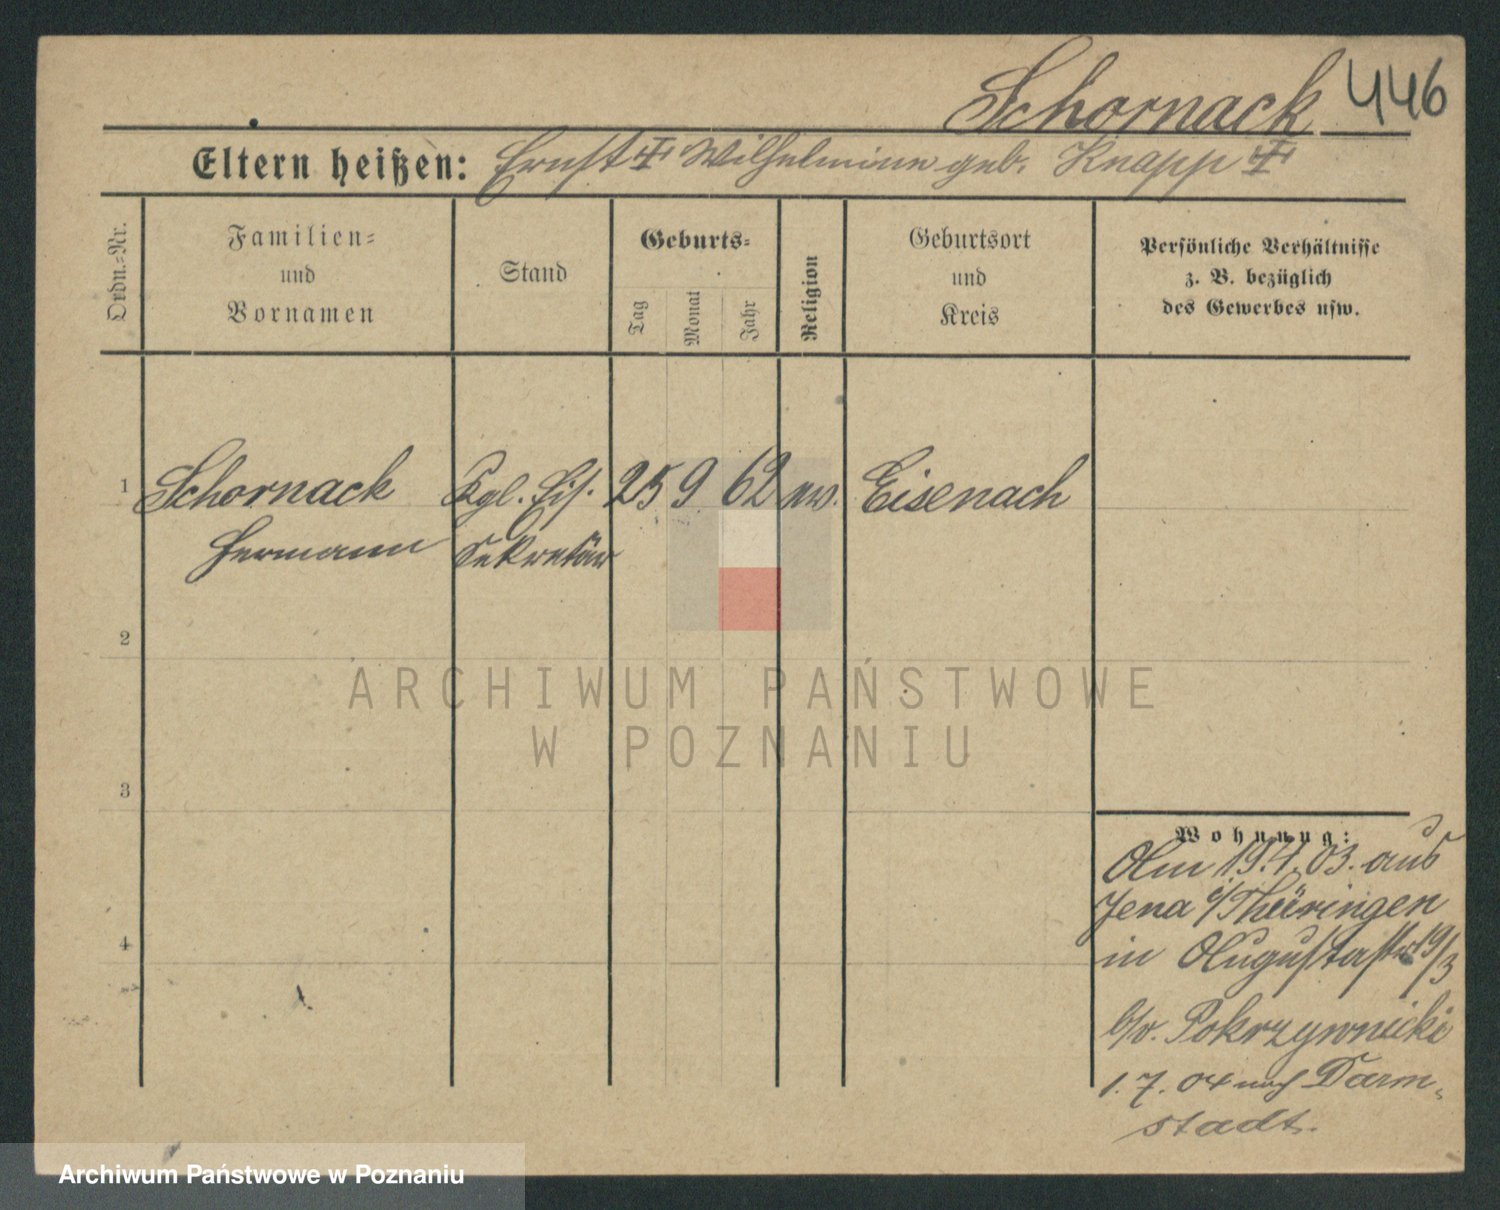 Schornack 446
Eltern heißen: Ernst Wilhelmine geb. Knapp
Ordn.=Nr.
Familien=
und
Vornamen
Stand
Geburts=
Tag
Monat
Jahr
Religion
Geburtsort
und
Kreis
Persönliche Verhältnisse
z. B. bezüglich
des Gewerbes usw.
1 Schornack Kgl. Eis. 25 9 62 ev. Eisenach
Hermann Sekretär
2
3
4
Wohnung:
Am 19.4.03. aus
Jena i/Thüringen
in Augustastr 19/3
b/v. Pokrzywnicki
1.7.04 nach Darm-
stadt.
ARCHIWUM PAŃSTWOWE
W POZNANIU
Archiwum Państwowe w Poznaniu